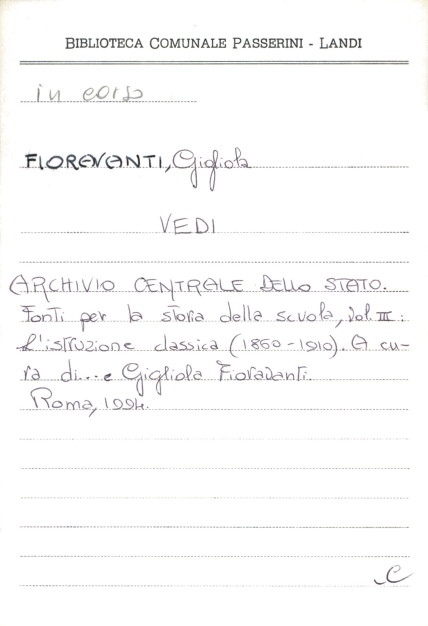 BIBLIOTECA COMUNALE PASSERINI - LANDI
in corso
FIORAVANTI, Gigliola
VEDI
ARCHIVIO CENTRALE DELLO STATO.
Fonti per la storia della scuola, vol. III:
L'istruzione classica (1860-1910). A cu-
ra di... e Gigliola Fioravanti.
Roma, 1994.
C